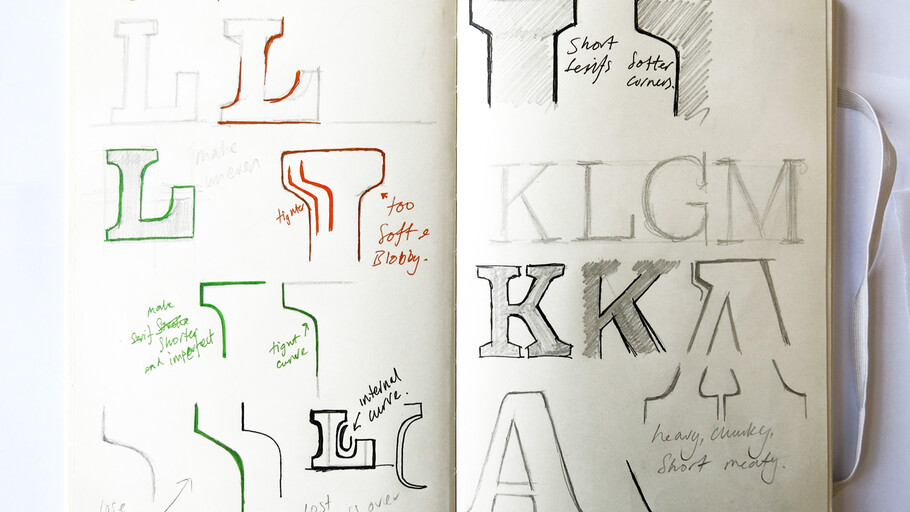 L L
make
uneven
L
T
tighter
too
Soft &
Blobby.
make
serif
shorter
and imperfect
tight
curve
internal
curve.
L
lose
lost
over
Short
serifs
Softer
corners.
KLGM
K K A
heavy, chunky,
short meaty.
A